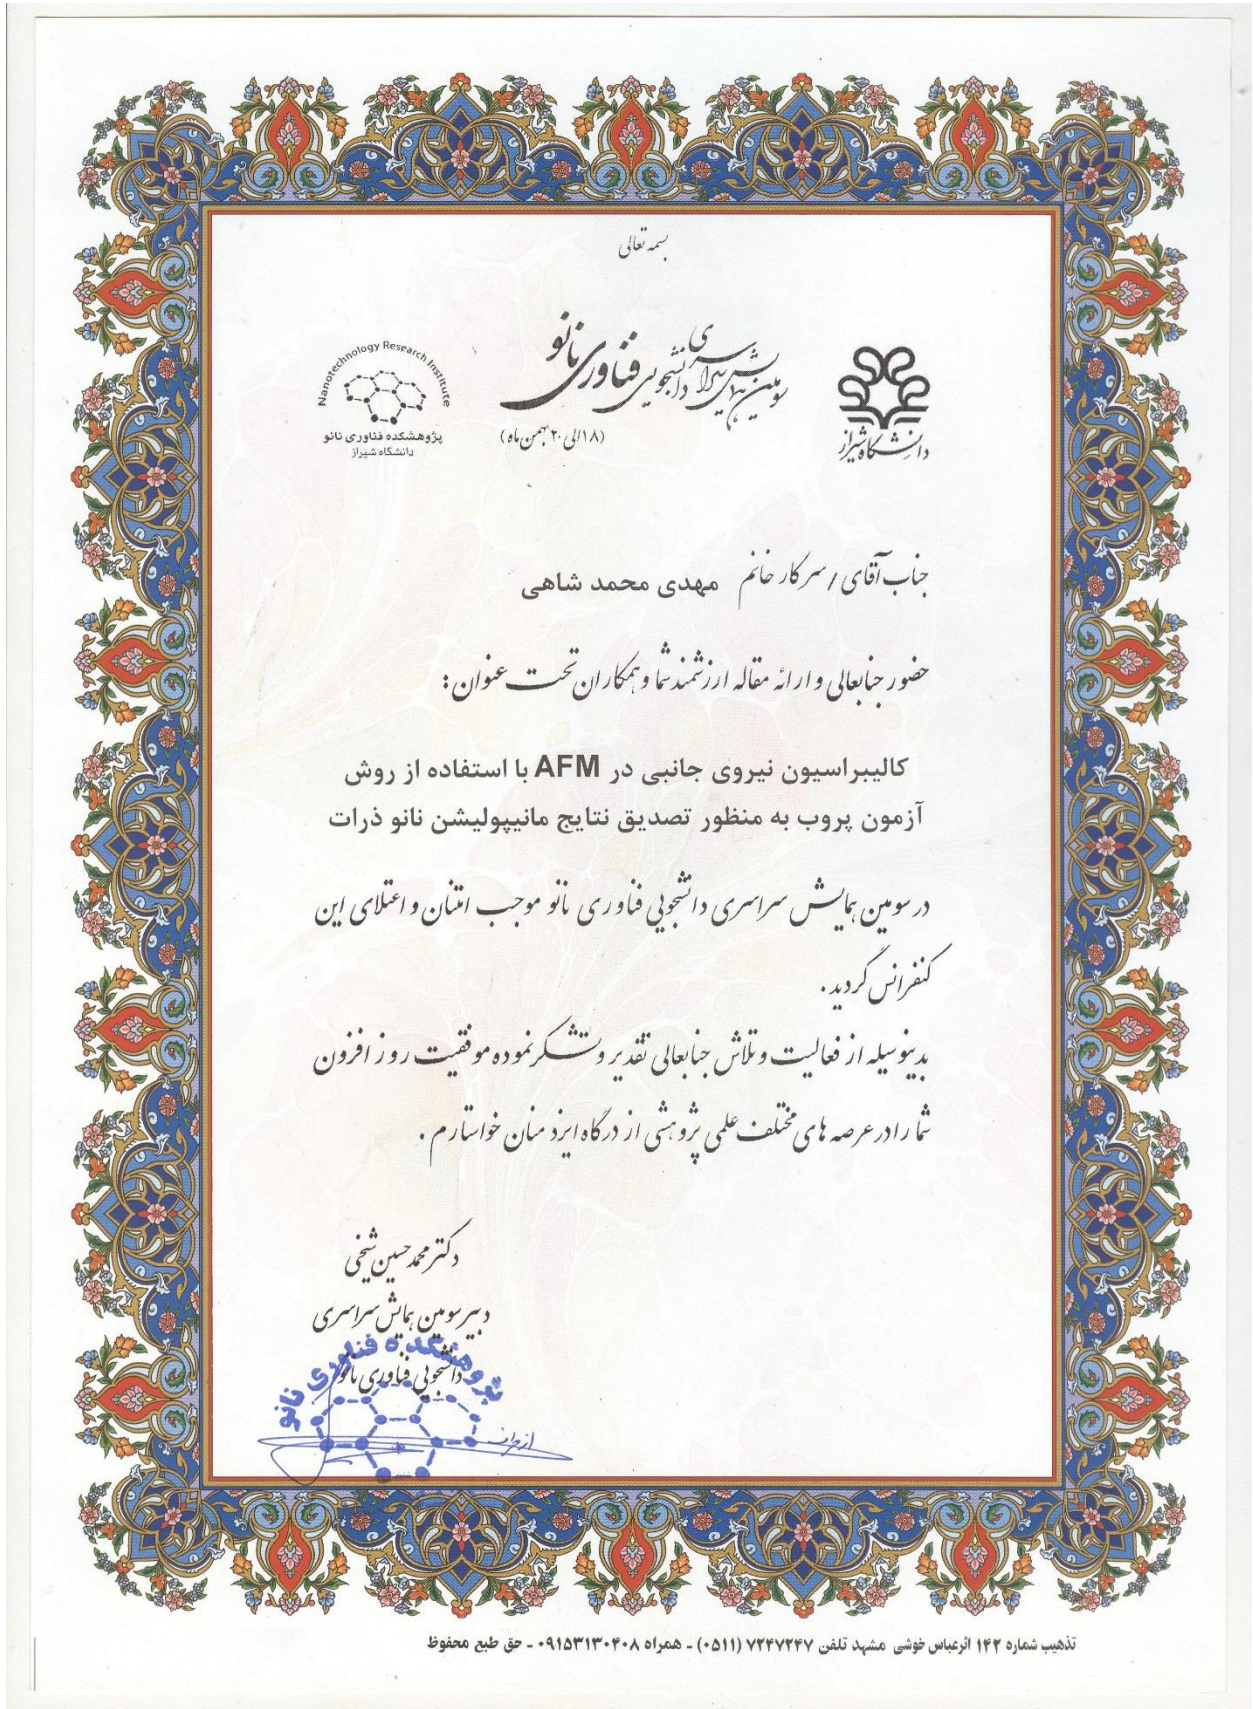 بسمه تعالی
سومین همایش سراسری
دانشجویی فناوری نانو
(۱۸ الی ۲۰ بهمن ماه)
دانشگاه شیراز
Nanotechnology Research Institute
پژوهشکده فناوری نانو
دانشگاه شیراز
جناب آقای / سرکار خانم مهدی محمد شاهی
حضور جنابعالی و ارائه مقاله ارزشمند شما و همکاران تحت عنوان :
کالیبراسیون نیروی جانبی در AFM با استفاده از روش
آزمون پروب به منظور تصدیق نتایج مانیپولیشن نانو ذرات
در سومین همایش سراسری دانشجویی فناوری نانو موجب امتنان و اعتلای این
کنفرانس گردید .
بدینوسیله از فعالیت و تلاش جنابعالی تقدیر و تشکر نموده موفقیت روز افزون
شما را در عرصه های مختلف علمی پژوهشی از درگاه ایزد منان خواستارم .
دکتر محمد حسین شیخی
دبیر سومین همایش سراسری
دانشجویی فناوری نانو
پژوهشکده فناوری نانو
از طرف
تذهیب شماره ۱۴۲ اثرعباس خوشی مشهد تلفن ۷۲۴۷۲۴۷ (۰۵۱۱) ـ همراه ۰۹۱۵۳۱۳۰۴۰۸ ـ حق طبع محفوظ